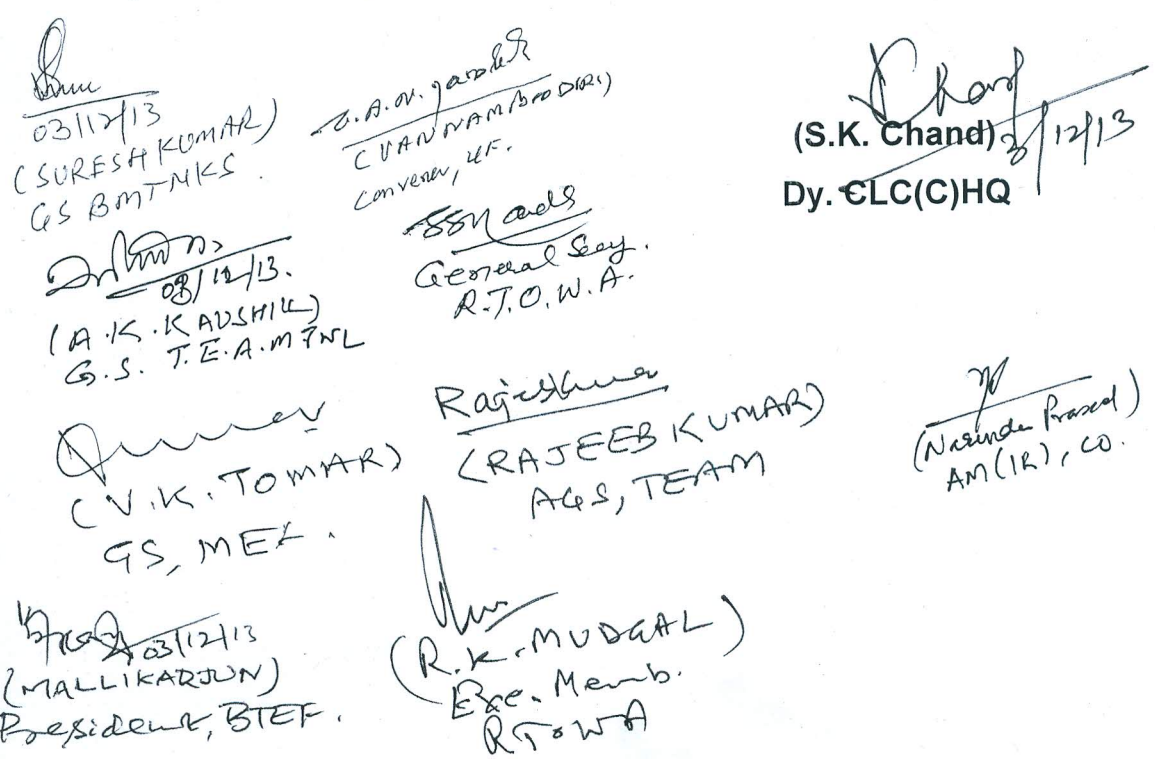 03/12/13
(SURESH KUMAR)
GS BMTNKS.
(VAN NAMBOODIRI)
Convener, UF.
(S.K. Chand)
3/12/13
Dy. CLC(C)HQ
03/12/13.
(A.K.KAUSHIK)
G.S. T.E.A.MTNL
General Secy.
R.T.O.W.A.
(V.K. TOMAR)
GS, MEF.
(RAJEEB KUMAR)
AGS, TEAM
(Narinder Prasad)
AM(IR), CO.
03/12/13
(MALLIKARJUN)
President, BTEF.
(R.K. MUDGAL)
Exe. Memb.
RTOWA